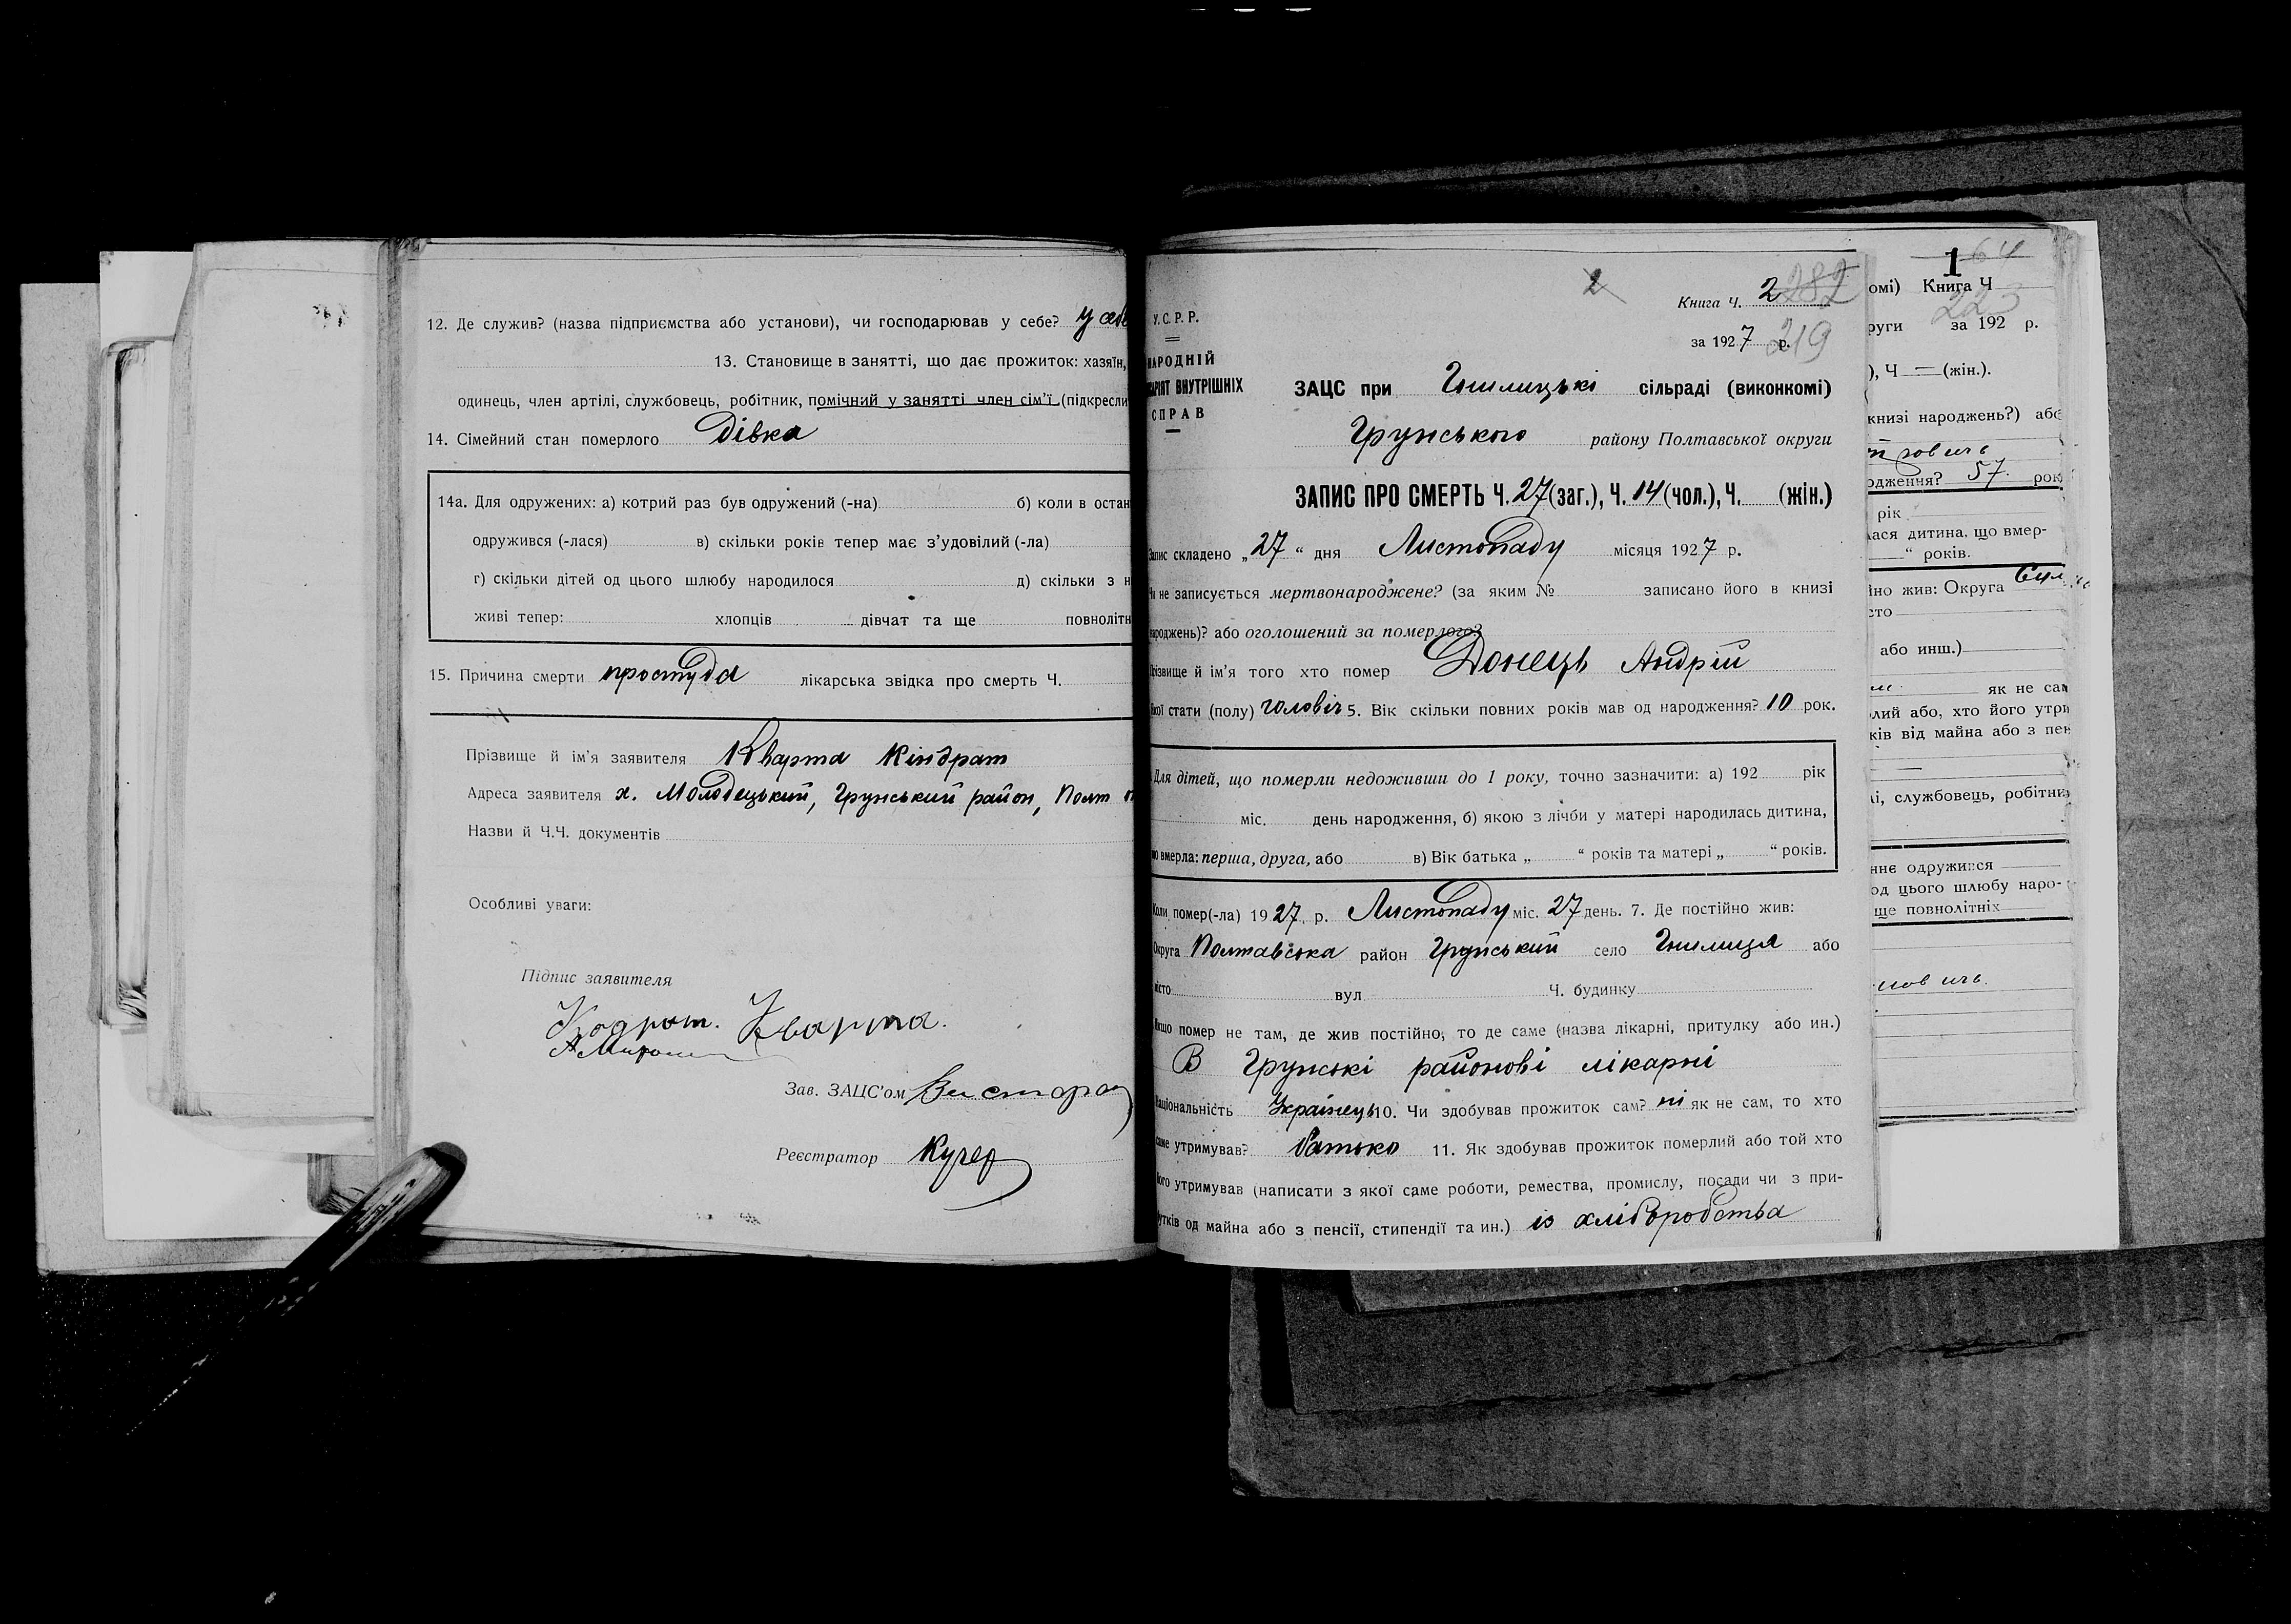 12. Де служив? (назва підприємства або установи), чи господарював у себе? у себе
13. Становище в занятті, що дає прожиток: хазяїн,
одинець, член артілі, службовець, робітник, помічний у занятті член сім'ї (підкресли
14. Сімейний стан померлого Дівка
14а. Для одружених: а) котрий раз був одружений (-на) б) коли в остан
одружився (-лася) в) скільки років тепер має з'удовілий (-ла)
г) скільки дітей од цього шлюбу народилося д) скільки з н
живі тепер: хлопців дівчат та ще повнолітн
15. Причина смерти простуда лікарська звідка про смерть Ч.
Прізвище й ім'я заявителя Кварта Кіндрат
Адреса заявителя х. Молодецький, Грунський район, Полт
Назви й Ч.Ч. документів
Особливі уваги:
Підпис заявителя
Кодрат. Кварта.
Зав. ЗАЦС'ом
Реєстратор Кучер
2
Книга Ч. 2 282
за 1927 р. 219
У.С.Р.Р.
НАРОДНІЙ
АРІЯТ ВНУТРІШНІХ
СПРАВ
ЗАЦС при Гнилицькі сільраді (виконкомі)
Грунського району Полтавської округи
ЗАПИС ПРО СМЕРТЬ Ч. 27 (заг.), Ч. 14 (чол.), Ч. (жін.)
Запис складено „27“ дня Листопаду місяця 1927 р.
Чи не записується мертвонароджене? (за яким № записано його в книзі
народжень)? або оголошений за померлого?
Прізвище й ім'я того хто помер Донець Андрій
Якої стати (полу) чоловіч 5. Вік скільки повних років мав од народження? 10 рок.
Для дітей, що померли недоживши до 1 року, точно зазначити: а) 192 рік
міс. день народження, б) якою з лічби у матері народилась дитина,
що вмерла: перша, друга, або в) Вік батька „ “ років та матері „ “ років.
Коли помер(-ла) 1927 р. Листопаду міс. 27 день. 7. Де постійно жив:
Округа Полтавська район Грунський село Гнилиця або
місто вул Ч. будинку
Якщо помер не там, де жив постійно, то де саме (назва лікарні, притулку або ин.)
В Грунські районові лікарні
Національність Українець 10. Чи здобував прожиток сам? ні як не сам, то хто
саме утримував? батько 11. Як здобував прожиток померлий або той хто
його утримував (написати з якої саме роботи, ремества, промислу, посади чи з при-
бутків од майна або з пенсії, стипендії та ин.) із хліборобства
1 64
омі) Книга Ч
223
руги за 192 р.
), Ч — (жін.).
книзі народжень?) або
одження? 57 рок
рік
лася дитина, що вмер-
“ років.
йно жив: Округа
сто
або инш.)
як не сам
лий або, хто його утри
ків від майна або з пен
лі, службовець, робітни
ннє одружився
од цього шлюбу наро-
ще повнолітніх